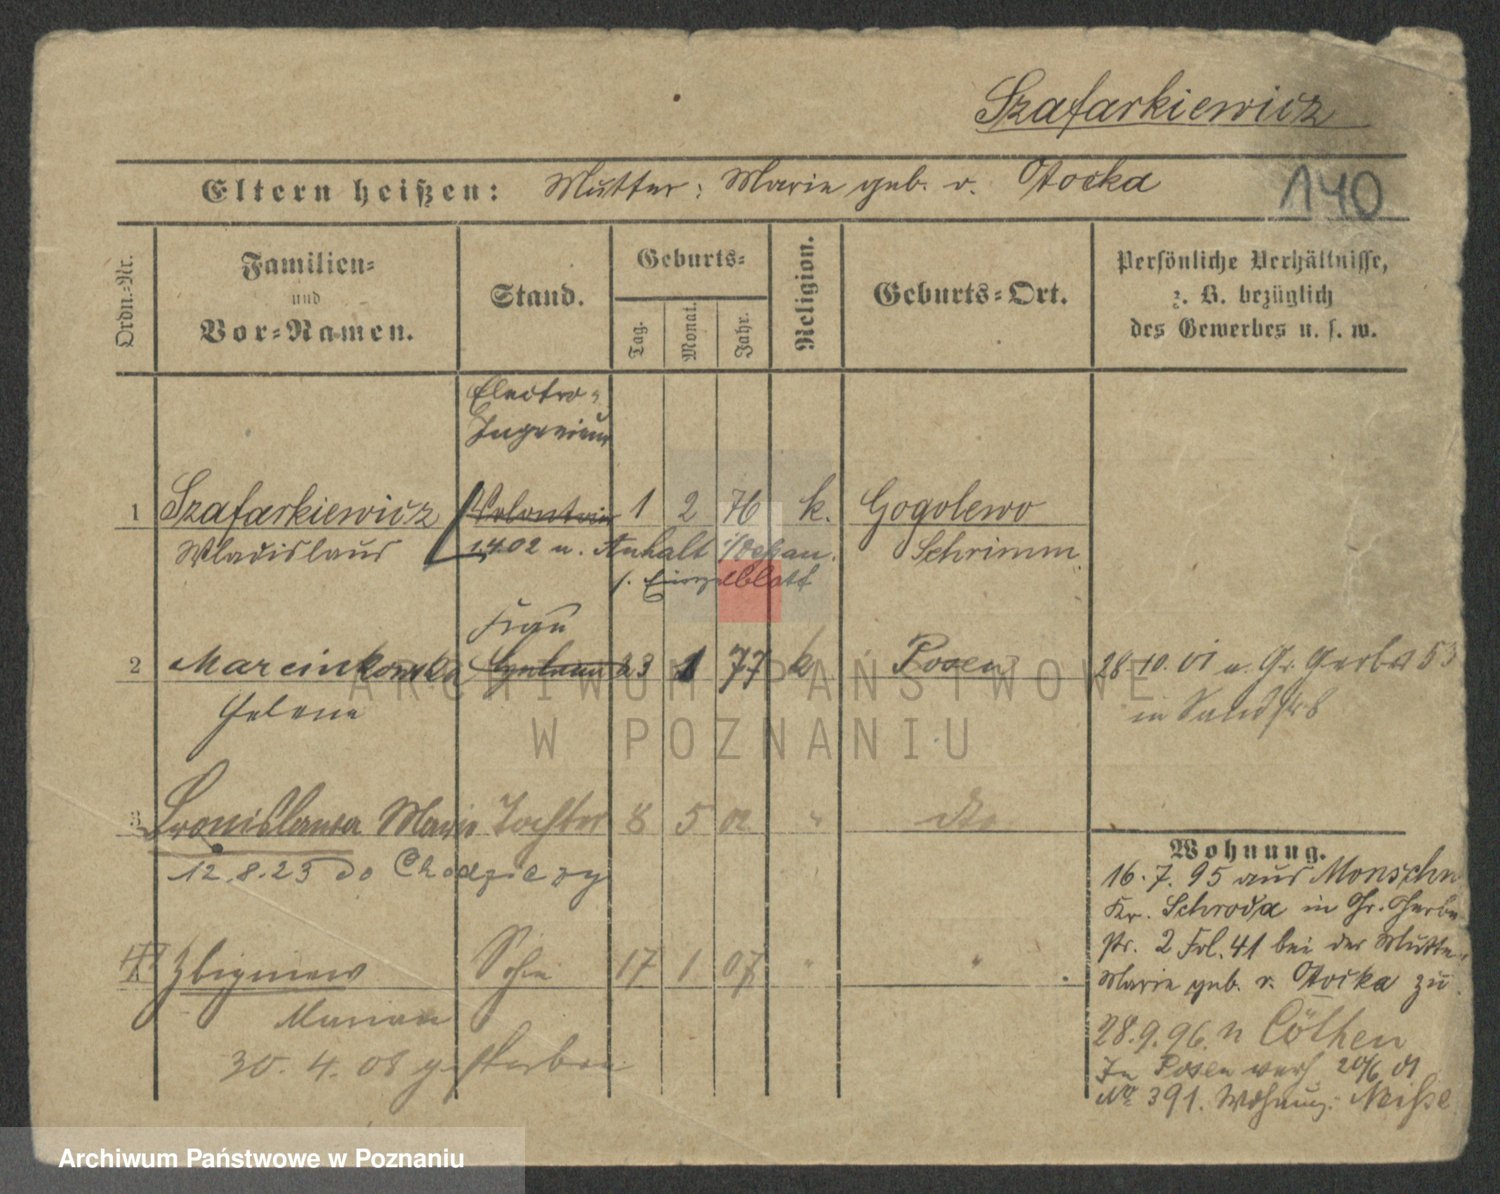 Szafarkiewicz
Eltern heißen: Mutter: Marie geb. v. Otocka
140
Ordn.-Nr.
Familien-
und
Vor-Namen.
Stand.
Geburts-
Tag.
Monat.
Jahr.
Religion.
Geburts-Ort.
Persönliche Verhältnisse,
z. B. bezüglich
des Gewerbes u. s. w.
Electro-
Ingenieur
1 Szafarkiewicz Volontair 1 2 76 k. Gogolewo
Wladislaus 1.4.02 n. Anhalt Dessau. Schrimm
s. Einzelblatt
Frau
2 Marcinkowska 23 1 77 k Posen 28.10.01 n. Gr. Gerberst 53
Helene in Sandstr 8
3 Bronislawa Marie Tochter 8 5 02 " dto
12.8.23 do Chodzieży
Zbigniew Sohn 17 1 07 " "
Marian
30.4.08 gestorben
Wohnung.
16.7.95 aus Monschn
Kr. Schroda in Gr. Gerber
str. 2 Fol. 41 bei der Mutter
Marie geb. v. Otocka zu
28.9.96. n Cöthen
In Posen verh 20/6 01
No 391. Wohnung: Neiße
ARCHIWUM PAŃSTWOWE
W POZNANIU
Archiwum Państwowe w Poznaniu